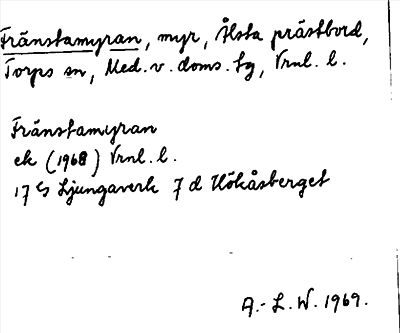 Fränstamyran, myr, Ålsta prästbord,
Torps sn, Med. v. doms. tg, Vrnl. l.
Fränstamyran
ek (1968) Vrnl. l.
17 G Ljungaverk 7 d Hökåsberget
A.-L. W. 1969.